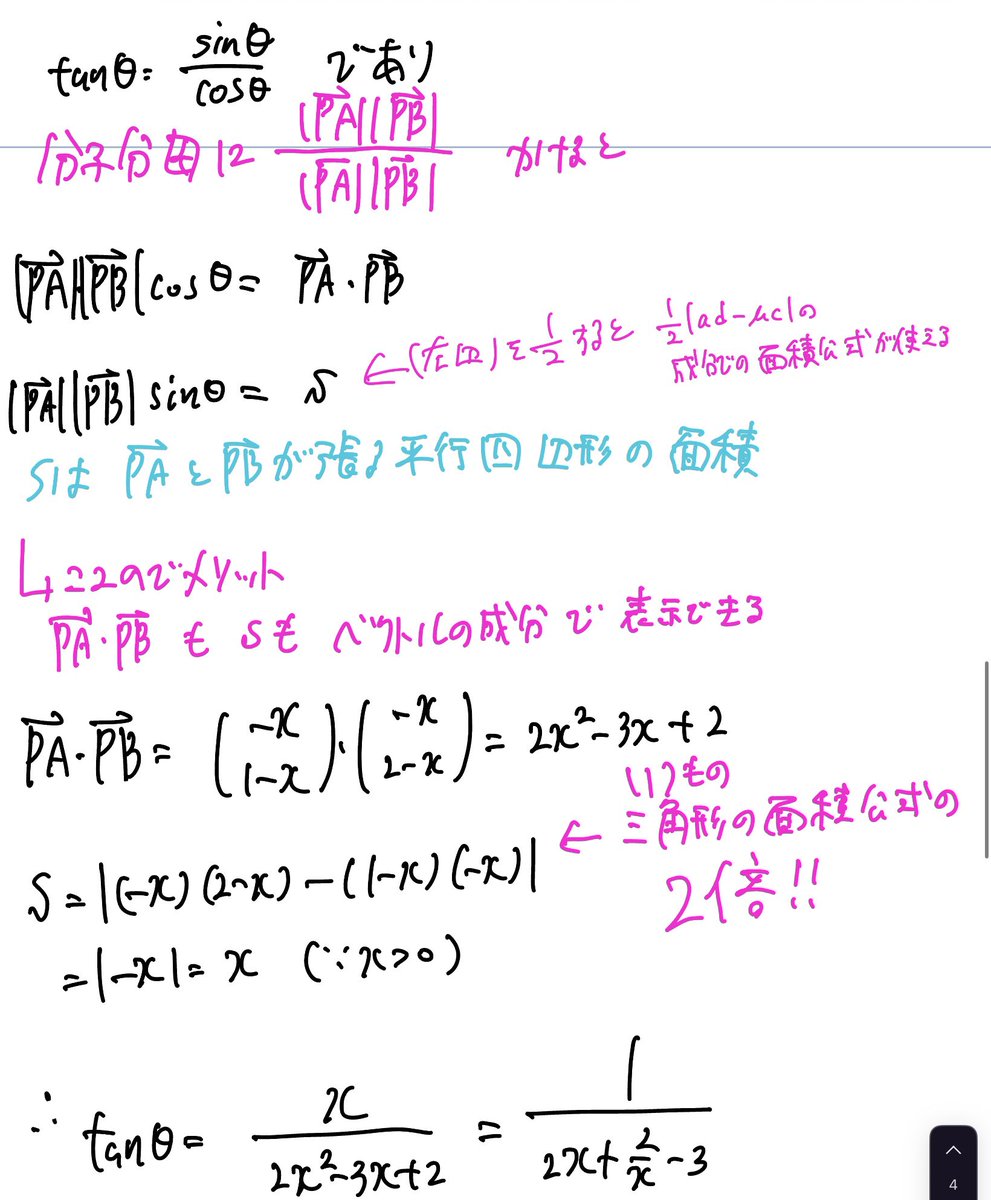 tanθ = sinθ/cosθ であり
分子分母に |PA||PB|/|PA||PB| かけると
|PA||PB|cosθ = PA・PB
|PA||PB|sinθ = S ← (左辺)を1/2すると 1/2|ad-bc|の
成分での面積公式が使える
Sは PAとPBが張る平行四辺形の面積
↳ここでのメリット
PA・PBもSもベクトルの成分で表示できる
PA・PB = (-x 1-x)・(-x 2-x) = 2x²-3x+2
S = |(-x)(2-x)-(1-x)(-x)| ← いつもの
三角形の面積公式の
2倍!!
= |-x| = x (∵x>0)
∴ tanθ = x/(2x²-3x+2) = 1/(2x+2/x-3)
4